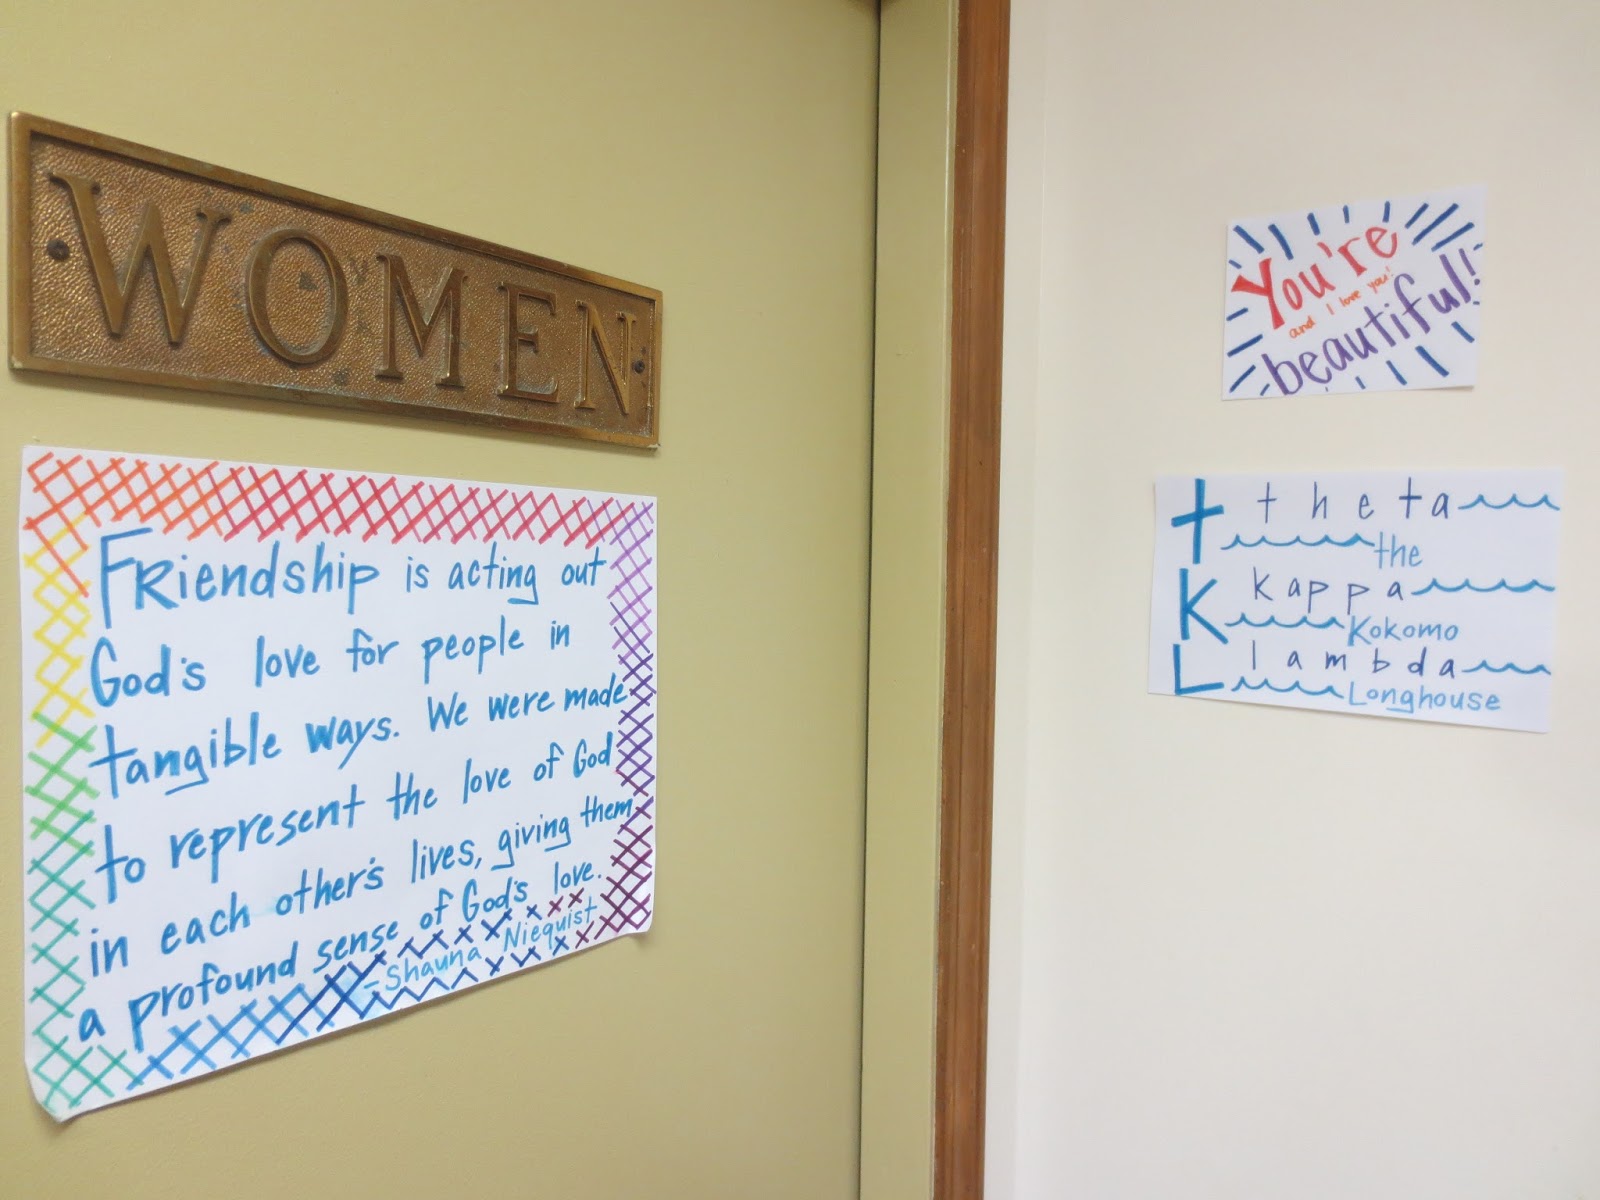 WOMEN
FRiendship is acting out
God's love for people in
tangible ways. We were made
to represent the love of God
in each other's lives, giving them
a profound sense of God's love.
-Shauna Niequist
You're
and I love you!
beautiful!
t theta
the
K kappa
Kokomo
L lambda
Longhouse